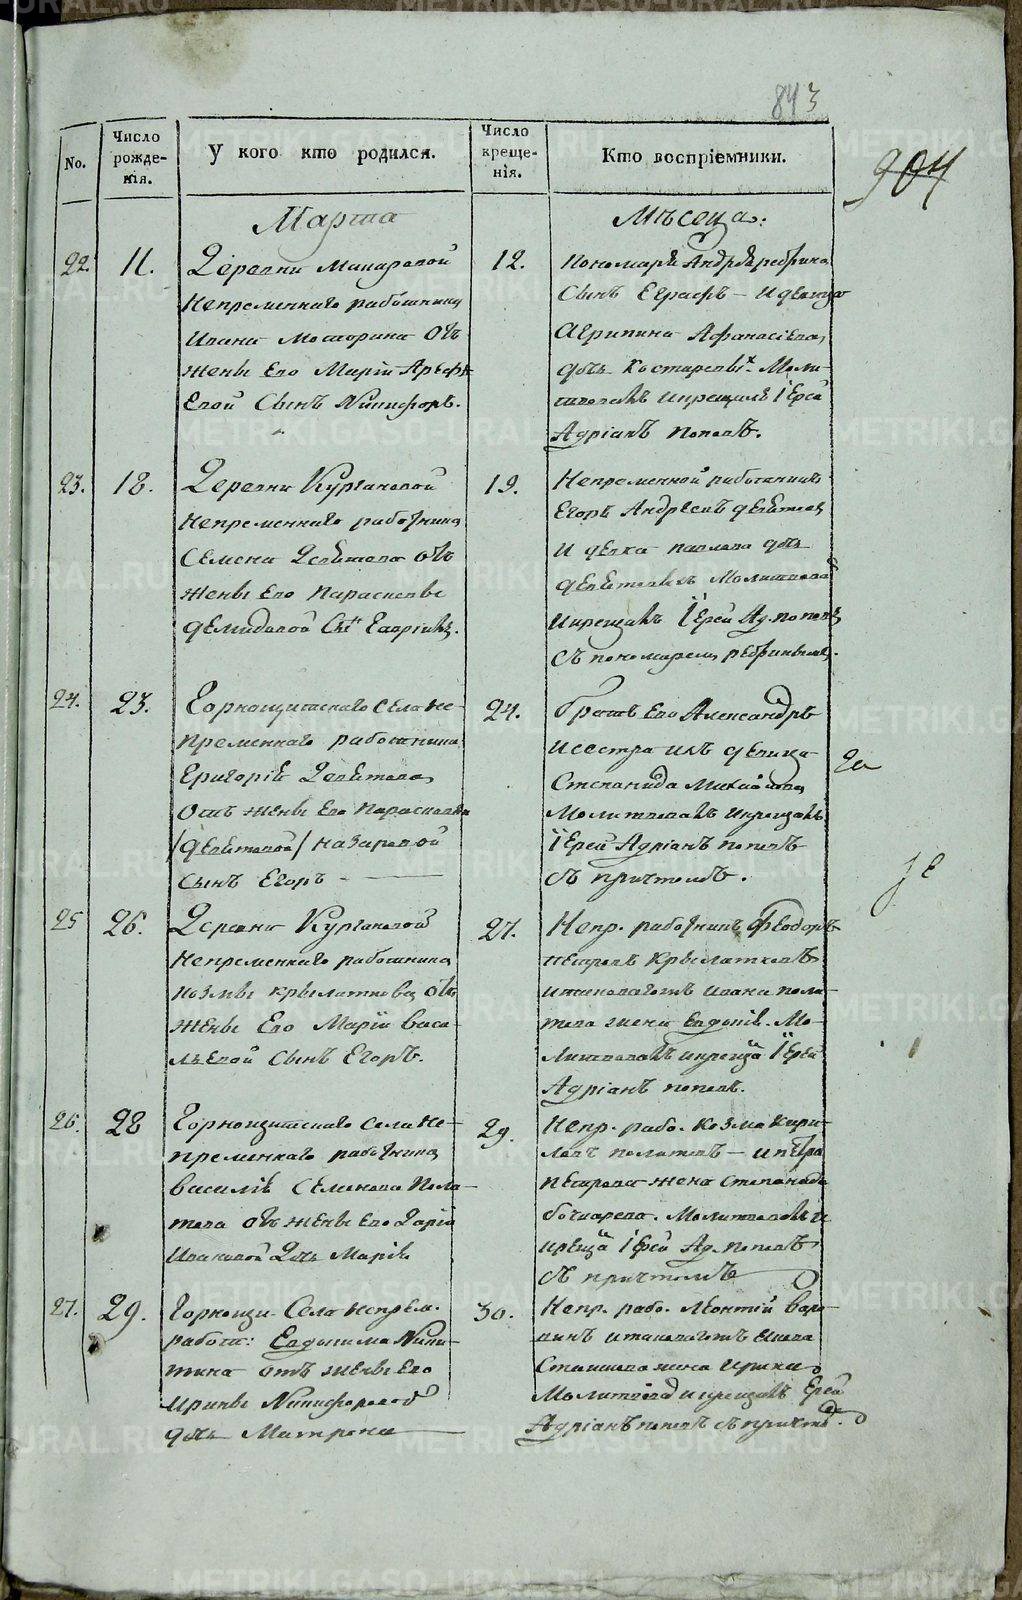 843
904
No.
Число рожде- нія.
У кого кто родился.
Число креще- нія.
Кто воспріемники.
Марта
Мѣсеца:
22.
11.
Деревни Макаровой
Непременнаго работника
Ивана Мосторина отъ
жены Его Маріи Арефи
Евой Сынъ Никифоръ.
12.
Пономаря Андрѣя
Сынъ Евграфъ — и девица
Агрипина Афанасіева
дочь Костаревыхъ Моли-
твовалъ и крещалъ Іерей
Адріанъ Поповъ.
23.
18.
Деревни Кургановой
Непременнаго работника
Семена Девятова отъ
жены Его Парасковьи
Демидовой Сынъ Гавріилъ.
19.
Непременной работникъ
Егоръ Андреевъ Девятовъ
и девка Павлова дочь
Девятовыхъ Молитвовалъ
и крещалъ Іерей Ад. Поповъ
съ пономаремъ
24.
23.
Горнощитскаго села не-
пременнаго работника
Григорія Девятова
отъ жены Его Парасковьи
/Девятовой/ Назаровой
Сынъ Егоръ —
24.
Братъ Его Александръ
и сестра ихъ девица
Степанида Михайлова
Молитвовалъ и крещалъ
Іерей Адріанъ Поповъ
съ причтомъ.
25
26.
Деревни Кургановой
Непременнаго работника
Козмы Крылаткова отъ
жены Его Маріи Васи-
льевой Сынъ Егоръ.
27.
Непр. работникъ Феодоръ
Петровъ Крылатковъ
и тановагожъ Ивана Поля-
това жена Евдокія. Мо-
литвовалъ и креща Іерей
Адріанъ Поповъ.
26.
28
Горнощитскаго Села не-
пременнаго работника
Василія Семенова Поля-
това отъ жены Его Даріи
Ивановой Дочь Марія
29.
Непр. рабо. Козма Кири-
ловъ Полятовъ — и Петра
Петрова жена Степанида
Бочкарева. Молитвовалъ и
креща Іерей Ад. Поповъ
съ причтомъ
27.
29.
Горнощи. Села непрем.
работн: Евдокима Ники-
тина отъ жены Его
Ирины Никифоровой
дочь Матрона —
30.
Непр. рабо. Леонтій Варо-
нинъ
жена Ирина
Молитвовалъ и крещалъ Іерей
Адріанъ Поповъ съ причтом.
METRIKI.GASO-URAL.RU